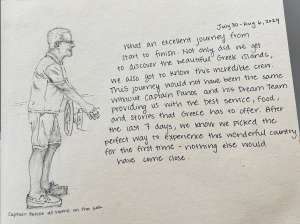 July 30 - Aug 6, 2024
What an excellent journey from
start to finish. Not only did we get
to discover the beautiful Greek islands,
we also got to know this incredible crew.
This journey would not have been the same
without Captain Panos and his Dream Team
providing us with the best service, food,
and stories that Greece has to offer. After
the last 7 days, we know we picked the
perfect way to experience this wonderful country
for the first time - nothing else would
have come close
Captain Panos at home on the sea